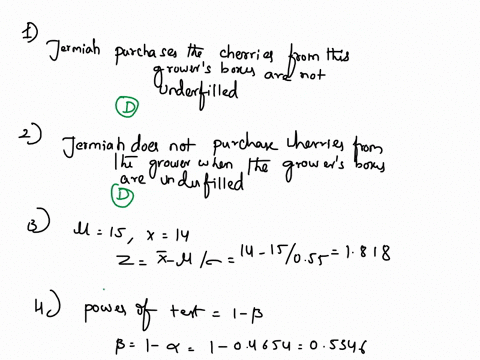 1) Jermiah purchases the cherries from this
grower's boxes are not
underfilled
D
2) Jermiah does not purchase cherries from
the grower when the grower's boxes
are underfilled
D
3) μ = 15, x = 14
Z = x̄ - μ / σ = 14 - 15 / 0.55 = 1.818
4) power of test = 1 - β
β = 1 - α = 1 - 0.4654 = 0.5346